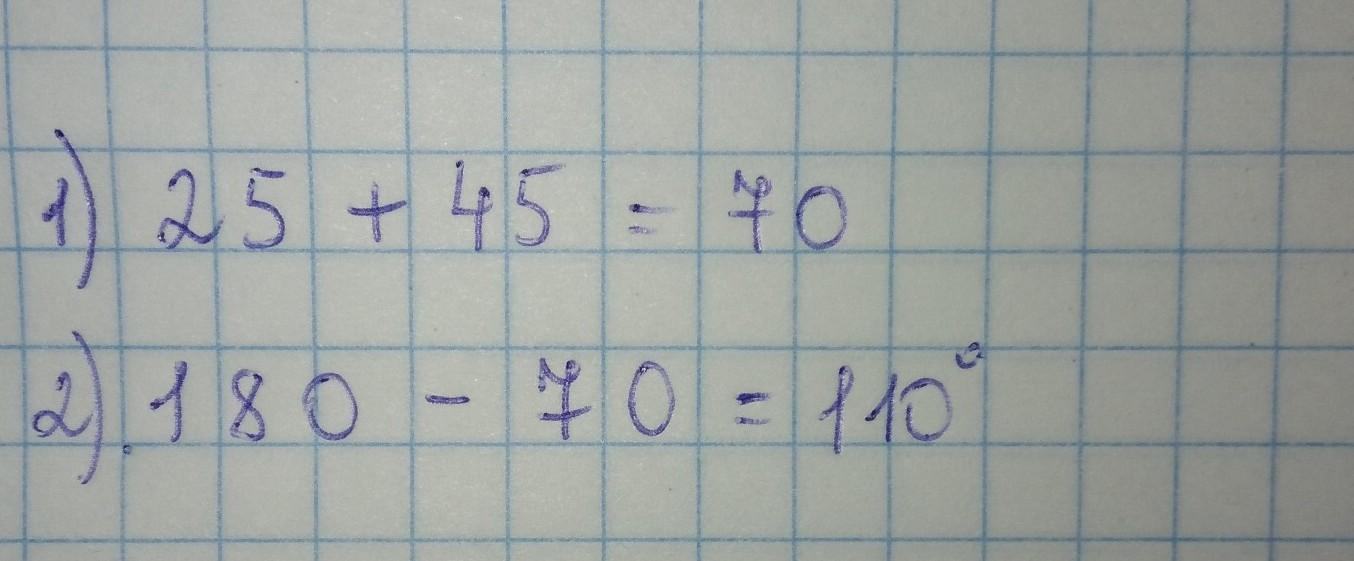 1) 25 + 45 = 70
2). 180 - 70 = 110°